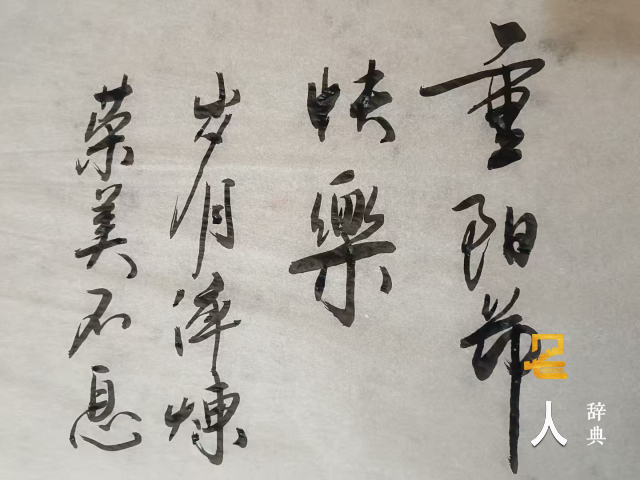 重阳节
快樂
岁月淬煉
荣美不息
名人
辞典